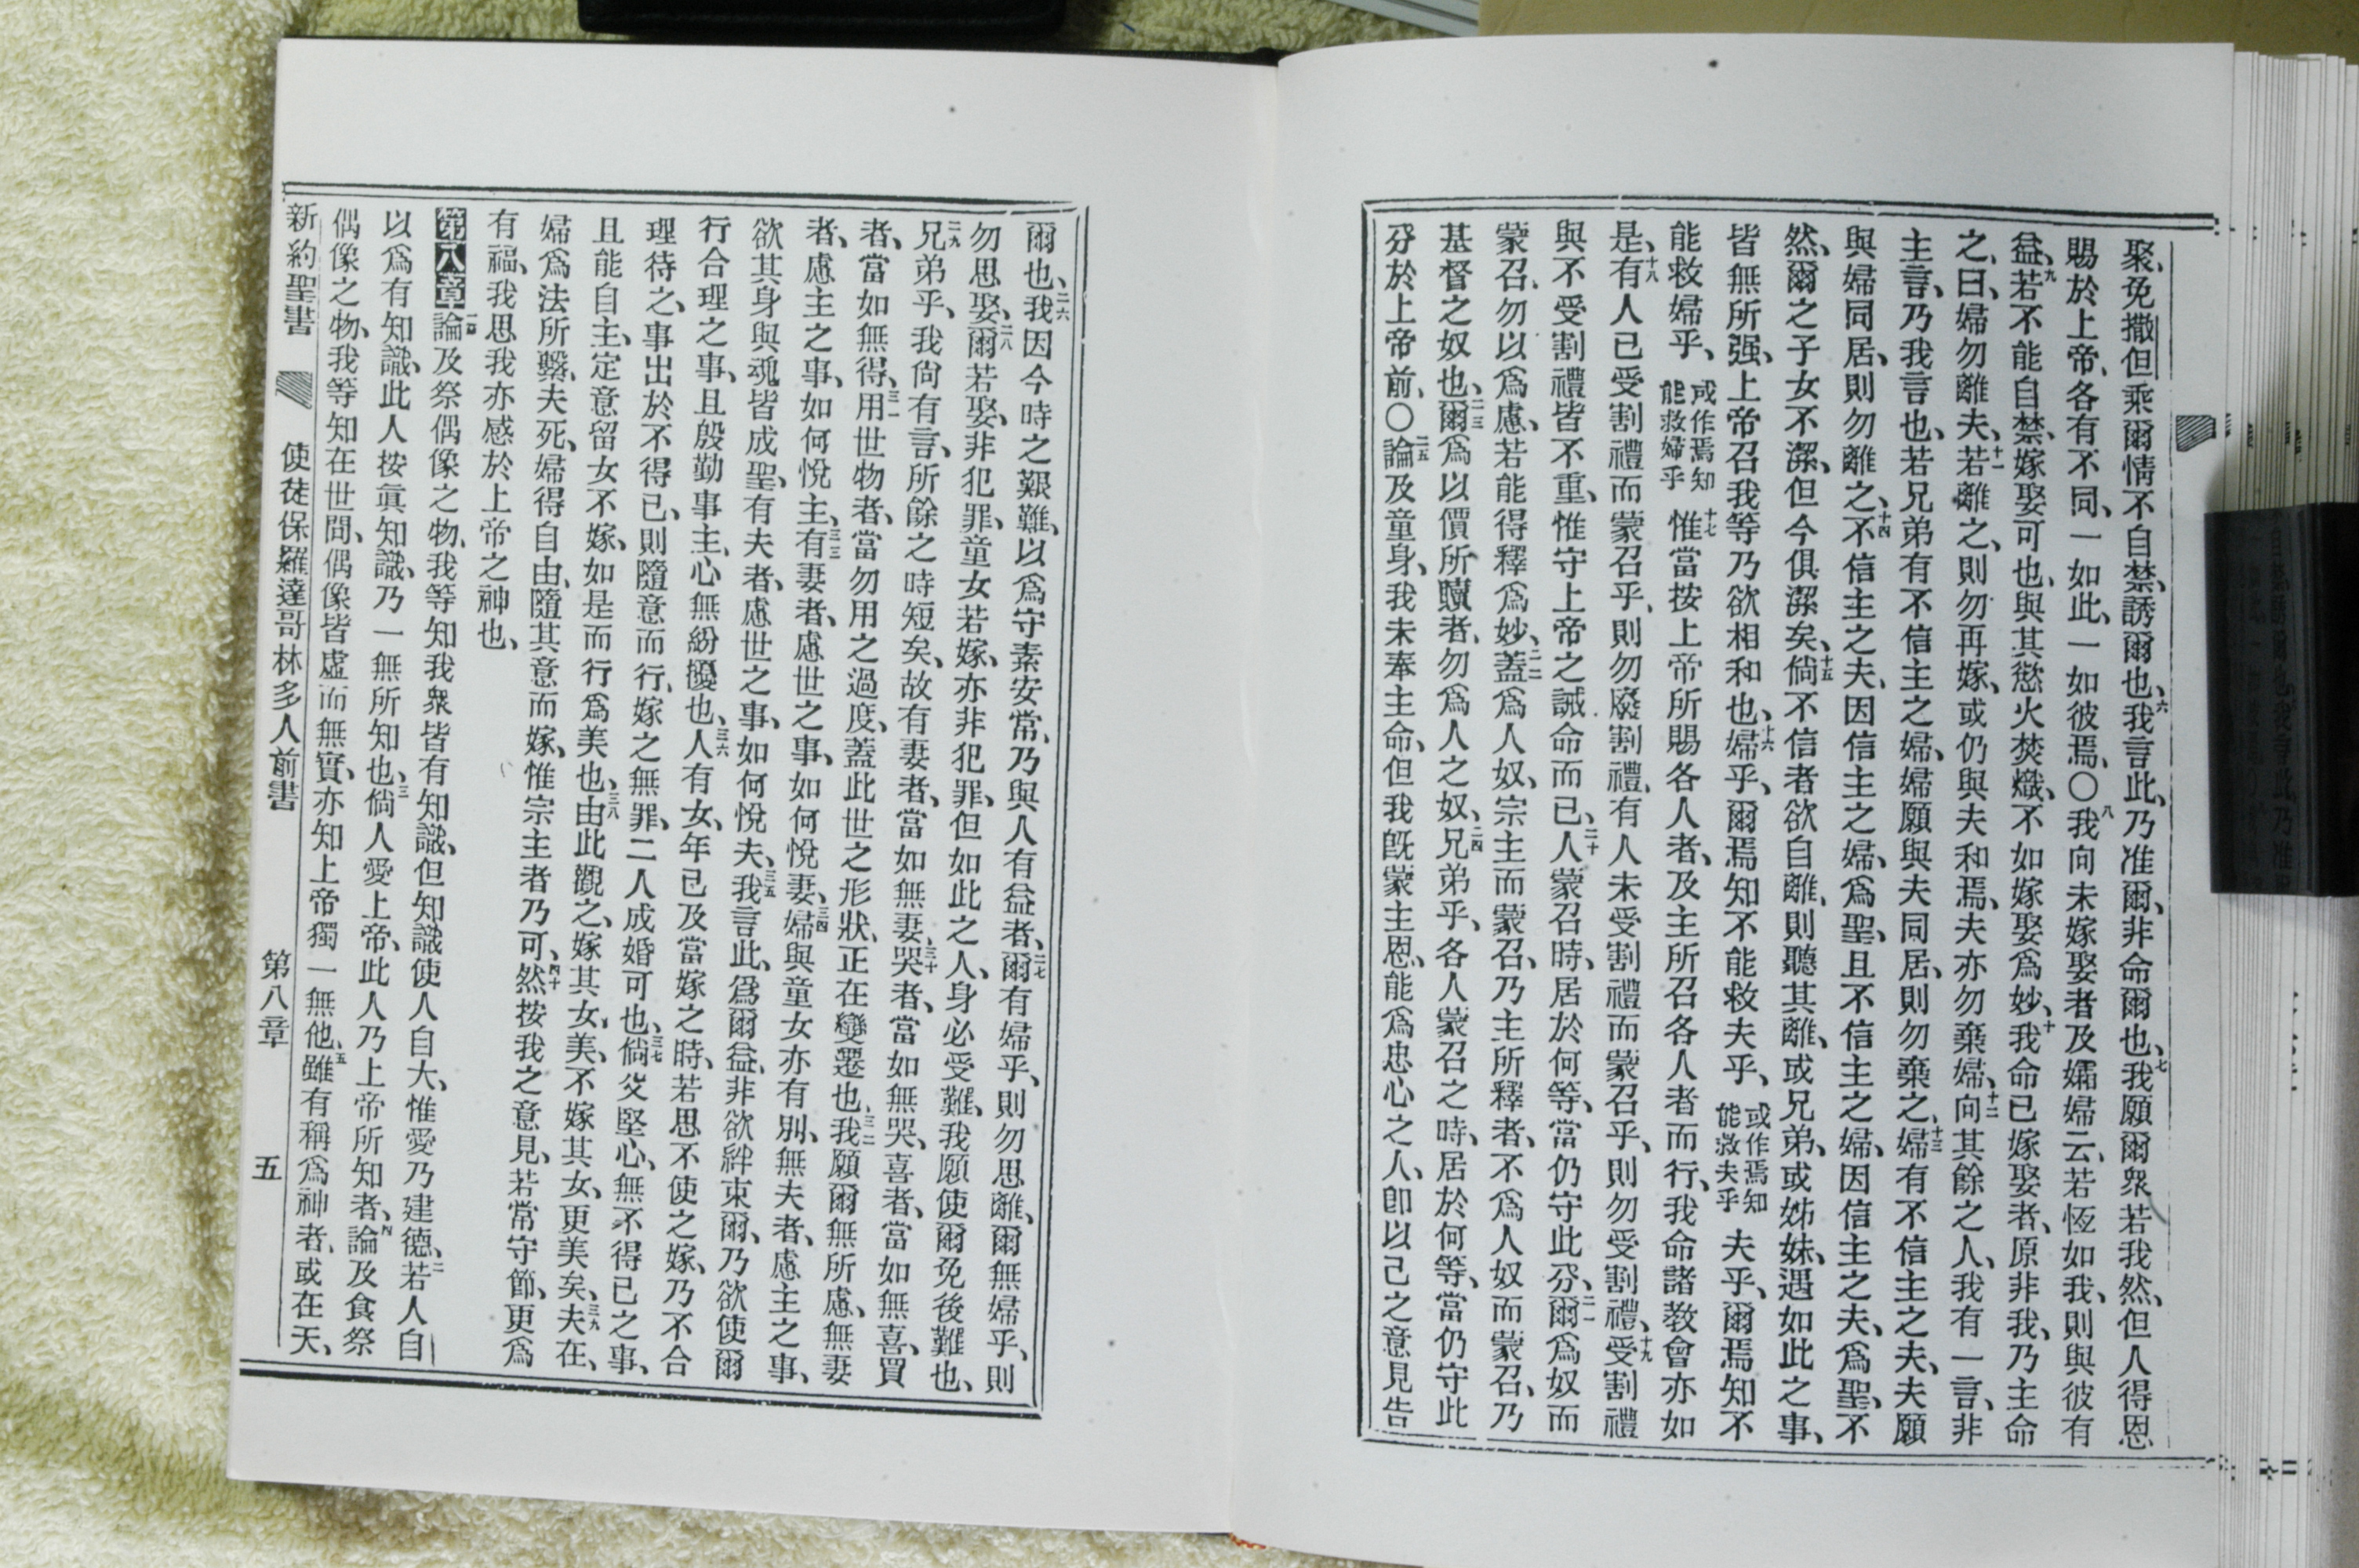 聚、免撒但乘爾情不自禁、誘爾也、六我言此、乃准爾、非命爾也、七我願爾衆若我然、但人得恩
賜於上帝、各有不同、一如此、一如彼焉、〇八我向未嫁娶者及孀婦云、若恆如我、則與彼有
益、九若不能自禁、嫁娶可也、與其慾火焚熾、不如嫁娶爲妙、十我命已嫁娶者、原非我、乃主命
之、曰、婦勿離夫、十一若離之、則勿再嫁、或仍與夫和焉、夫亦勿棄婦、十二向其餘之人、我有一言、非
主言、乃我言也、若兄弟有不信主之婦、婦願與夫同居、則勿棄之、十三婦有不信主之夫、夫願
與婦同居、則勿離之、十四不信主之夫、因信主之婦、爲聖、且不信主之婦、因信主之夫、爲聖、不
然、爾之子女不潔、但今俱潔矣、十五倘不信者欲自離、則聽其離、或兄弟、或姊妹、遇如此之事、
皆無所强、上帝召我等乃欲相和也、十六婦乎、爾焉知不能救夫乎、或作焉知能救夫乎夫乎、爾焉知不
能救婦乎、或作焉知能救婦乎十七惟當按上帝所賜各人者、及主所召各人者而行、我命諸敎會亦如
是、十八有人已受割禮而蒙召乎、則勿廢割禮、有人未受割禮而蒙召乎、則勿受割禮、十九受割禮
與不受割禮皆不重、惟守上帝之誡命而已、二十人蒙召時、居於何等、當仍守此分、二一爾爲奴而
蒙召、勿以爲慮、若能得釋爲妙、二二蓋爲人奴、宗主而蒙召、乃主所釋者、不爲人奴而蒙召、乃
基督之奴也、二三爾爲以價所贖者、勿爲人之奴、二四兄弟乎、各人蒙召之時、居於何等、當仍守此
分於上帝前、〇二五論及童身、我未奉主命、但我旣蒙主恩、能爲忠心之人、卽以己之意見告
爾也、二六我因今時之艱難、以爲守素安常、乃與人有益者、二七爾有婦乎、則勿思離、爾無婦乎、則
勿思娶、二八爾若娶、非犯罪、童女若嫁、亦非犯罪、但如此之人、身必受難、我願使爾免後難也、
二九兄弟乎、我尙有言、所餘之時短矣、故有妻者、當如無妻、三十哭者、當如無哭、喜者、當如無喜、買
者、當如無得、三一用世物者、當勿用之過度、蓋此世之形狀、正在變遷也、三二我願爾無所慮、無妻
者、慮主之事、如何悅主、三三有妻者、慮世之事、如何悅妻、三四婦與童女亦有別、無夫者、慮主之事、
欲其身與魂皆成聖、有夫者、慮世之事、如何悅夫、三五我言此、爲爾益、非欲絆束爾、乃欲使爾
行合理之事、且殷勤事主、心無紛擾也、三六人有女、年已及當嫁之時、若思不使之嫁、乃不合
理待之、事出於不得已、則隨意而行、嫁之無罪、二人成婚可也、三七倘父堅心、無不得已之事、
且能自主、定意留女不嫁、如是而行爲美也、三八由此觀之、嫁其女、美、不嫁其女、更美矣、三九夫在、
婦爲法所繫、夫死、婦得自由、隨其意而嫁、惟宗主者乃可、四十然按我之意見、若常守節、更爲
有福、我思我亦感於上帝之神也、
第八章一論及祭偶像之物、我等知我衆皆有知識、但知識使人自大、惟愛乃建德、二若人自
以爲有知識、此人按眞知識、乃一無所知也、三倘人愛上帝、此人乃上帝所知者、四論及食祭
偶像之物、我等知在世間、偶像皆虛而無實、亦知上帝獨一無他、五雖有稱爲神者、或在天、
新約聖書 使徒保羅達哥林多人前書 第八章 五